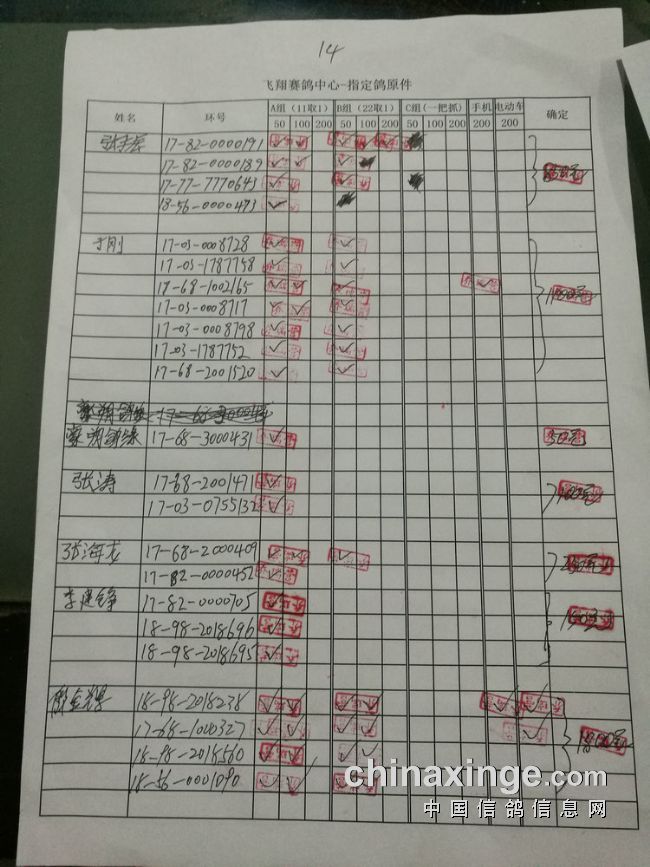 14
飞翔赛鸽中心-指定鸽原件
姓名 环号 A组（11取1） B组（22取1） C组（一把抓） 手机 电动车 确定
50 100 200 50 100 200 50 100 200 200 200
17-82-0000191
17-82-0000189
17-77-7770643
18-56-0000473
于刚 17-03-0008728
17-03-1787758
18-68-1002165
17-03-0008717
17-03-0008798
17-03-1787752
17-68-2001520
17-68-3000431 50元
张涛 17-68-2001471
17-03-0755132
张海龙 17-68-2000409
17-82-0000452
李建锋 17-82-0000705
18-98-2018696
18-98-2018695
18-98-2018238
17-68-1000327
18-98-2018560
18-56-0001090
chinaxinge.com
中国信鸽信息网